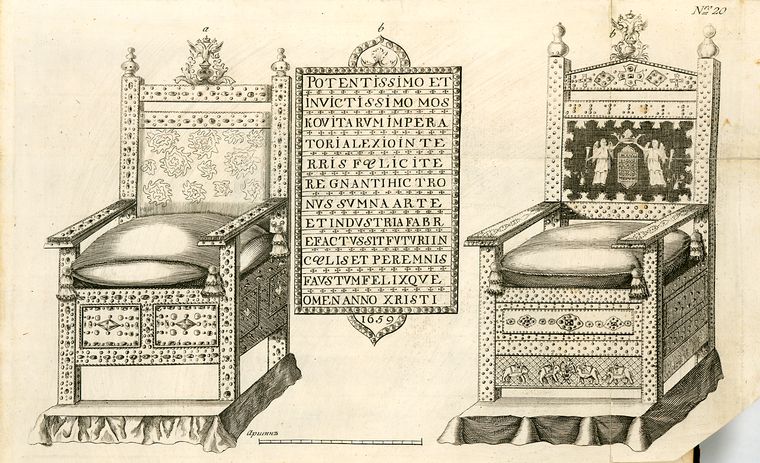 Nº 20
a
b
b
POTENTISSIMO ET
INVICTISSIMO MOS
KOVITARVM IMPERA
TORI ALEXIO IN TE
RRIS FŒLICITE
REGNANTI HIC TRO
NVS SVMNA ARTE
ET INDVSTRIA FABR
EFACTVS SIT FVTVRI IN
CŒLIS ET PEREMNIS
FAVSTVM FELIXQVE
OMEN ANNO XRISTI
1659
Аршинъ